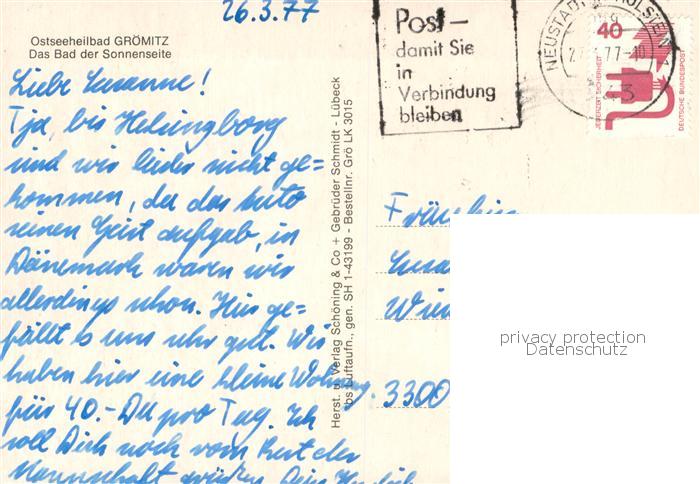 26.3.77
Ostseeheilbad GRÖMITZ
Das Bad der Sonnenseite
Liebe Susanne!
Tja, bis Helsingborg
sind wir leider nicht ge=
kommen, da das Auto
seinen Geist aufgab, in
Dänemark waren wir
allerdings schon. Hier ge-
fällt es uns sehr gut. Wir
haben hier eine kleine Wohnung
für 40.-DM pro Tag. Ich
soll Dich noch vom Rest der
Mannschaft grüßen. Dein
Herst. u. Verlag Schöning & Co + Gebrüder Schmidt - Lübeck
Luftaufn., gen. SH 1-43199 - Bestellnr. Grö LK 3015
Post-
damit Sie
in
Verbindung
bleiben
NEUSTADT HOLSTEIN 1
77-10
243
40
JEDERZEIT SICHERHEIT
DEUTSCHE BUNDESPOST
Fräulein
Susa
Wie
3300
privacy protection
Datenschutz